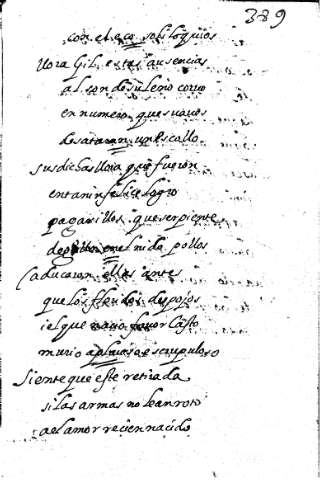 389
con el eco soliloquios
llora Gil estas ausencias
al son de su leño corvo
en numero que suaves
desataran un escollo
sus dichas llora que fueron
en tan infelice logro
pajarillos que serpiente
en el nido pollos
caducaron ellas antes
que los floridos despojos
i el que nacio favor casto
murio aplauso escrupuloso
siente que este retirada
si las armas no lean roto
ael amor recien nacido